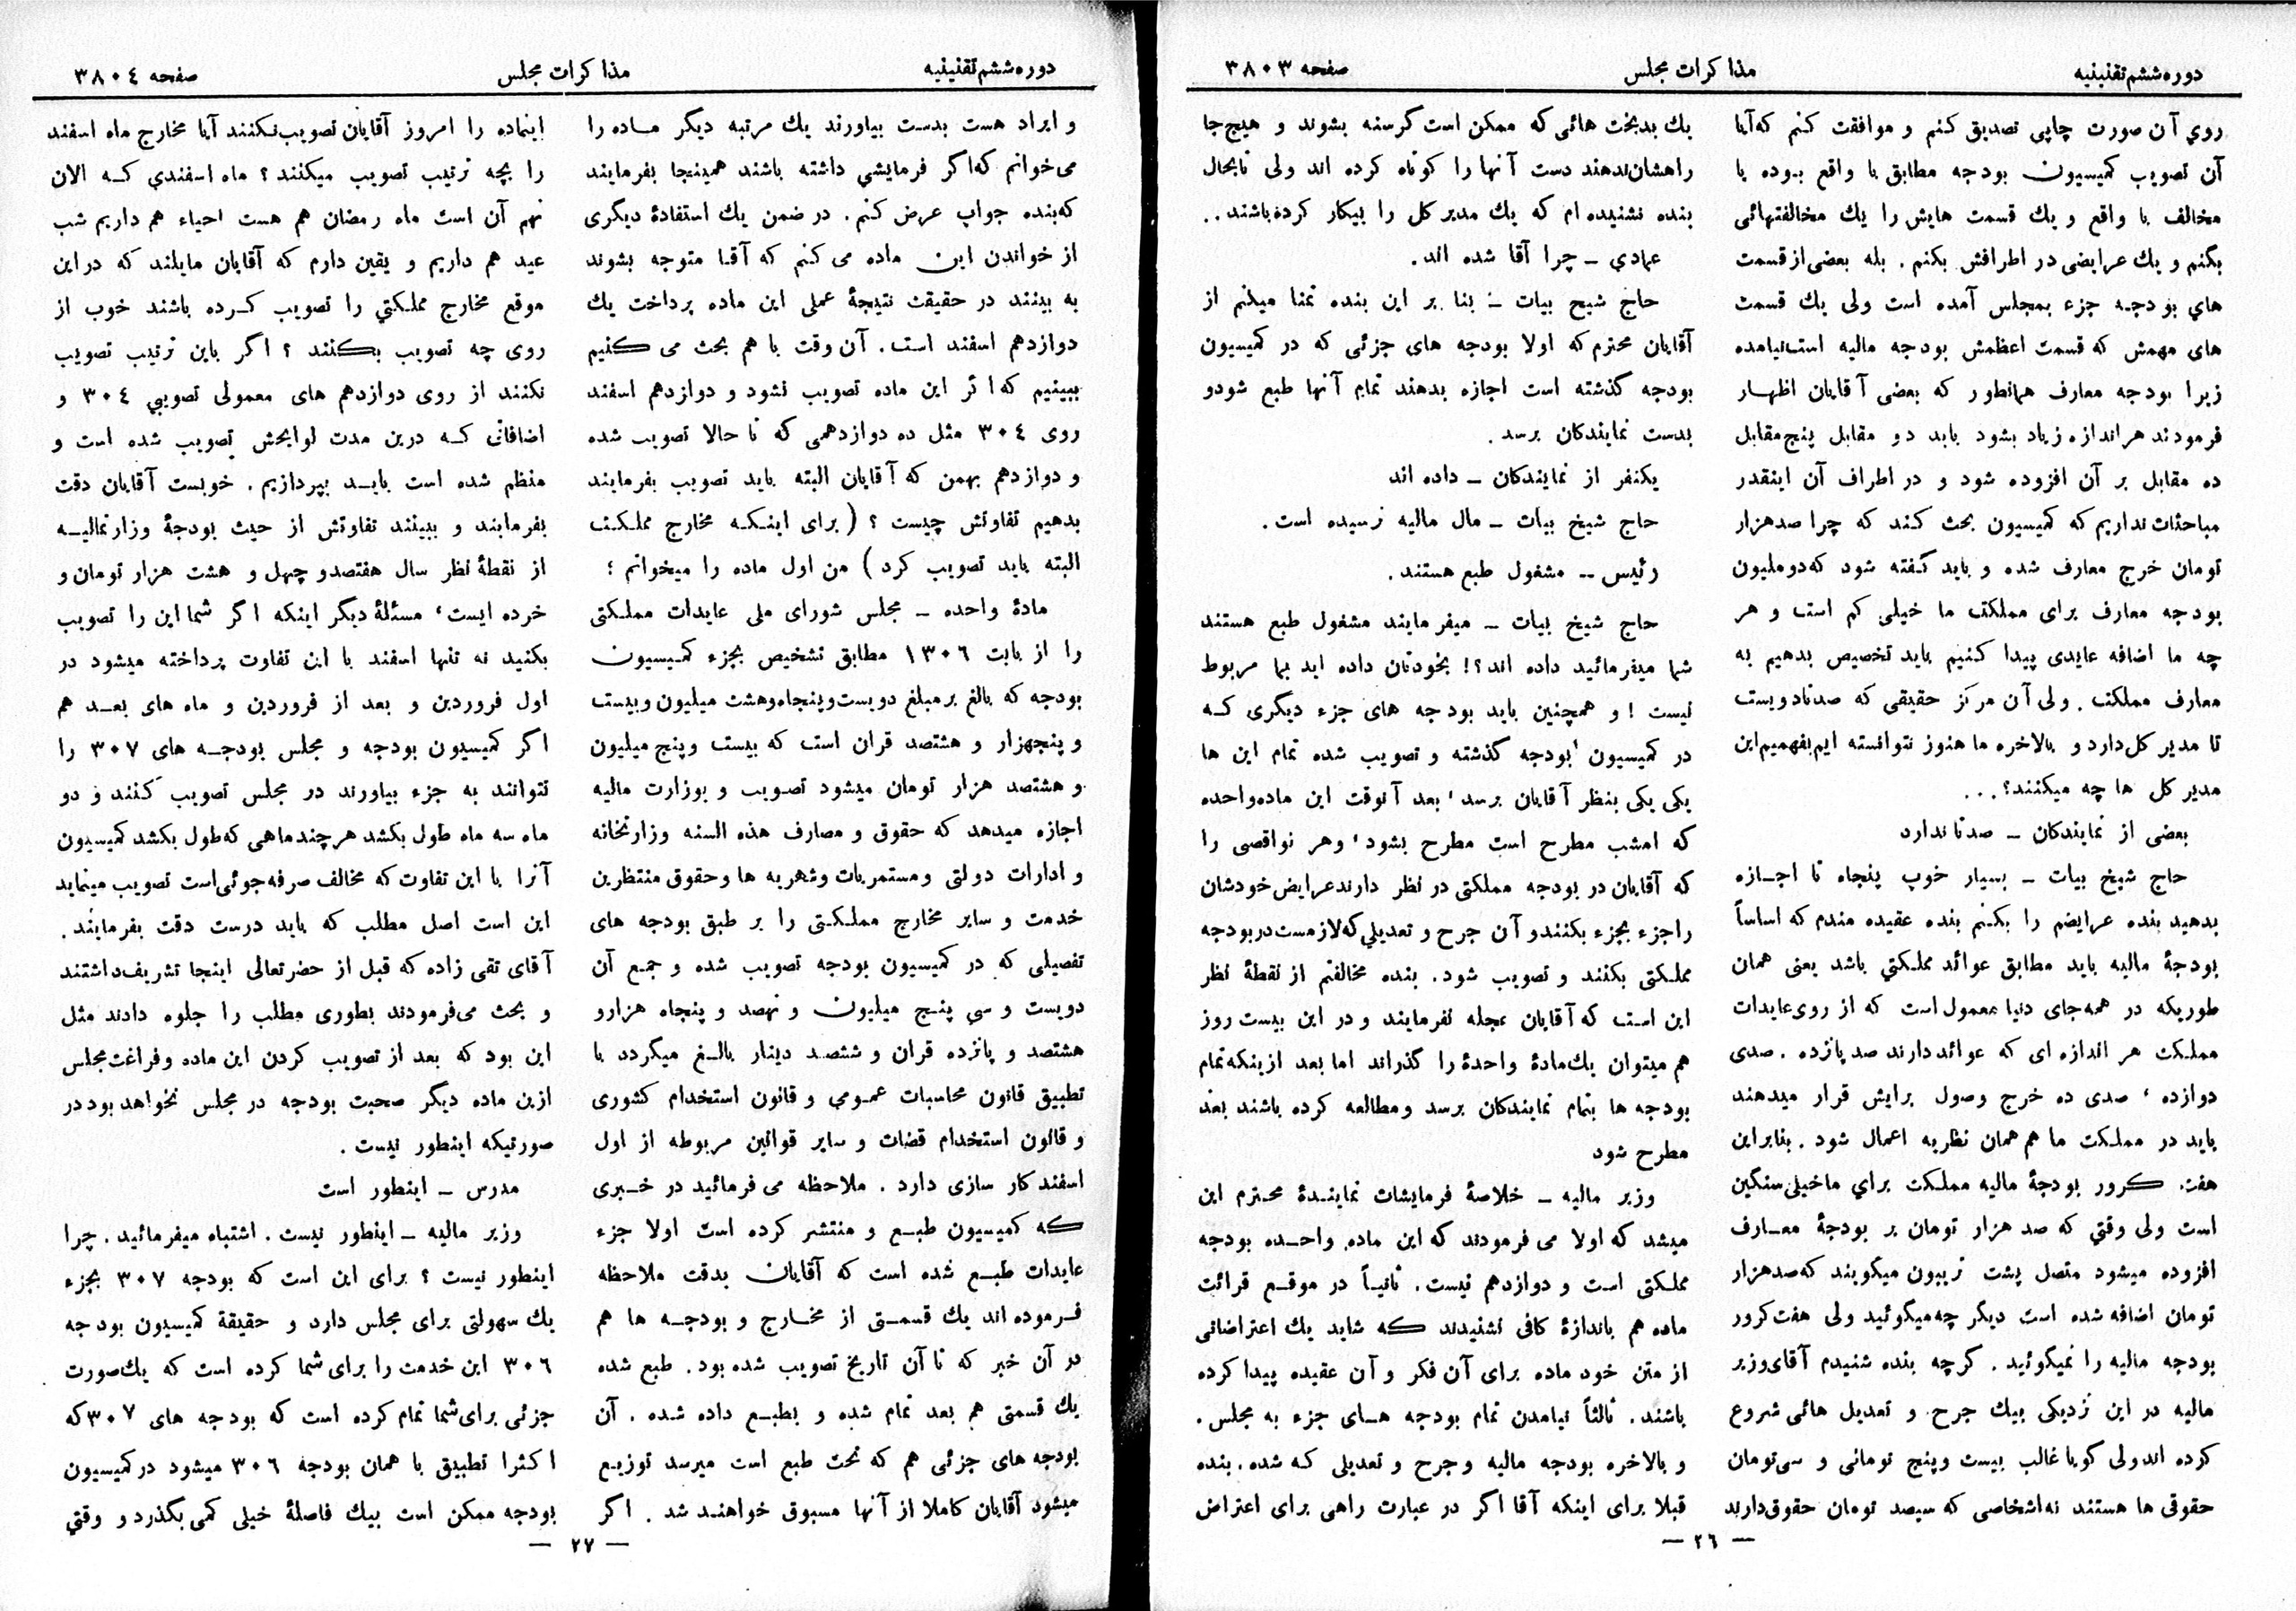 دوره ششم تقنینیه
مذاکرات مجلس
صفحه ۳۸۰۳
روي آن صورت چاپی تصدیق کنم و موافقت کنم که آیا
آن تصویب کمیسیون بودجه مطابق با واقع بوده یا
مخالف با واقع و یك قسمت هایش را یك مخالفتهائی
بگنم و یك عرایضی در اطرافش بکنم . بله بعضی از قسمت
هاي بودجه جزء بمجلس آمده است ولی یك قسمت
های مهمش که قسمت اعظمش بودجه مالیه است نیامده
زیرا بودجه معارف همانطور که بعضی آقایان اظهار
فرمودند هر اندازه زیاد بشود باید دو مقابل پنج مقابل
ده مقابل بر آن افزوده شود و در اطراف آن اینقدر
مباحثات نداریم که کمیسیون بحث کند که چرا صد هزار
تومان خرج معارف شده و باید گفته شود که دو ملیون
بودجه معارف برای مملکت ما خیلی کم است و هر
چه ما اضافه عایدی پیدا کنیم باید تخصیص بدهیم به
معارف مملکت . ولی آن مرکز حقیقی که صد تا دویست
تا مدیر کل دارد و بالاخره ما هنوز نتوانسته ایم بفهمیم این
مدیر کل ها چه میکنند؟ ...
بعضی از نمایندکان ــ صد تا ندارد
حاج شیخ بیات ــ بسیار خوب پنجاه تا اجازه
بدهید بنده عرایضم را بکنم بنده عقیده مندم که اساساً
بودجهٔ مالیه باید مطابق عوائد مملکتي باشد یعنی همان
طوریکه در همه جای دنیا معمول است که از روی عایدات
مملکت هر اندازه ای که عوائد دارند صد پانزده . صدی
دوازده ، صدی ده خرج وصول برایش قرار میدهند
باید در مملکت ما هم همان نظریه اعمال شود . بنابراین
هفت کرور بودجهٔ مالیه مملکت براي ما خیلی سنگین
است ولی وقتي که صد هزار تومان بر بودجهٔ معارف
افزوده میشود متصل پشت تریبون میگویند که صد هزار
تومان اضافه شده است دیگر چه میگوئید ولی هفت کرور
بودجه مالیه را نمیگوئید . گرچه بنده شنیدم آقای وزیر
مالیه در این نزدیکی بیك جرح و تعدیل هائی شروع
کرده اند ولی گویا غالب بیست و پنج تومانی و سی تومان
حقوقی ها هستند نه اشخاصی که سیصد تومان حقوق دارند
یك بدبخت هائی که ممکن است گرسنه بشوند و هیچ جا
راهشان ندهند دست آنها را کوتاه کرده اند ولی تابحال
بنده نشنیده ام که یك مدیر کل را بیکار کرده باشند . .
عمادي ــ چرا آقا شده اند .
حاج شیخ بیات ــ بنا بر این بنده تمنا میکنم از
آقایان محترم که اولا بودجه های جزئی که در کمیسیون
بودجه گذشته است اجازه بدهند تمام آنها طبع شود و
بدست نمایندکان برسد .
یکنفر از نمایندکان ــ داده اند
حاج شیخ بیات ــ مال مالیه نرسیده است .
رئیس ــ مشغول طبع هستند .
حاج شیخ بیات ــ میفرمایند مشغول طبع هستند
شما میفرمائید داده اند؟! بخودتان داده اید بما مربوط
نیست ! و همچنین باید بودجه های جزء دیگری که
در کمیسیون بودجه گذشته و تصویب شده تمام این ها
یکی یکی بنظر آقایان برسد ، بعد آنوقت این ماده واحده
که امشب مطرح است مطرح بشود ، وهر نواقصی را
که آقایان در بودجه مملکتی در نظر دارند عرایض خودشان
را جزء بجزء بکنند و آن جرح و تعدیلي که لازمست در بودجه
مملکتی بکنند و تصویب شود . بنده مخالفتم از نقطهٔ نظر
این است که آقایان عجله نفرمایند و در این بیست روز
هم میتوان یك مادهٔ واحدهٔ را گذراند اما بعد از بنکه تمام
بودجه ها بتمام نمایندکان برسد و مطالعه کرده باشند بعد
مطرح شود
وزیر مالیه ــ خلاصهٔ فرمایشات نمایندهٔ محترم این
میشد که اولا می فرمودند که این ماده واحده بودجه
مملکتی است و دوازدهم نیست . ثانیاً در موقع قرائت
ماده هم باندازهٔ کافی نشنیدند که شاید یك اعتراضاتی
از متن خود ماده برای آن فکر و آن عقیده پیدا کرده
باشند . ثالثاً نیامدن تمام بودجه های جزء به مجلس .
و بالاخره بودجه مالیه و جرح و تعدیلی که شده . بنده
قبلا برای اینکه آقا اگر در عبارت راهی برای اعتراض
— ۲۶ —
دوره ششم تقنینیه
مذاکرات مجلس
صفحه ۳۸۰۴
و ایراد هست بدست بیاورند یك مرتبه دیگر ماده را
می خوانم که اگر فرمایشي داشته باشند همینجا بفرمایند
که بنده جواب عرض کنم . در ضمن یك استفادهٔ دیگری
از خواندن این ماده می کنم که آقا متوجه بشوند
به بینند در حقیقت نتیجهٔ عملی این ماده پرداخت یك
دوازدهم اسفند است . آن وقت با هم بحث می کنیم
ببینیم که اگر این ماده تصویب نشود و دوازدهم اسفند
روی ۳۰۴ مثل ده دوازدهمی که تا حالا تصویب شده
و دوازدهم بهمن که آقایان البته باید تصویب بفرمایند
بدهیم تفاوتش چیست ؟ ( برای اینکه مخارج مملکت
البته باید تصویب کرد ) من اول ماده را میخوانم :
مادهٔ واحده ــ مجلس شورای ملی عایدات مملکتی
را از بابت ۱۳۰۶ مطابق تشخیص بجزء کمیسیون
بودجه که بالغ بر مبلغ دویست و پنجاه و هشت میلیون و بیست
و پنجهزار و هشتصد قران است که بیست و پنج میلیون
و هشتصد هزار تومان میشود تصویب و بوزارت مالیه
اجازه میدهد که حقوق و مصارف هذه السنه وزارتخانه
و ادارات دولتی و مستمریات و شهریه ها و حقوق منتظرین
خدمت و سایر مخارج مملکتی را بر طبق بودجه های
تفصیلی که در کمیسیون بودجه تصویب شده و جمع آن
دویست و سی پنج میلیون و نهصد و پنجاه هزار و
هشتصد و پانزده قران و ششصد دینار بالغ میگردد با
تطبیق قانون محاسبات عمومي و قانون استخدام کشوری
و قانون استخدام قضات و سایر قوانین مربوطه از اول
اسفند کار سازی دارد . ملاحظه می فرمائید در خبری
که کمیسیون طبع و منتشر کرده است اولا جزء
عایدات طبع شده است که آقایان بدقت ملاحظه
فرموده اند یك قسمتی از مخارج و بودجه ها هم
در آن خبر که تا آن تاریخ تصویب شده بود . طبع شده
یك قسمتی هم بعد تمام شده و بطبع داده شده . آن
بودجه های جزئی هم که تحت طبع است میرسد توزیع
میشود آقایان کاملا از آنها مسبوق خواهند شد . اگر
اینماده را امروز آقایان تصویب نکنند آیا مخارج ماه اسفند
را بچه ترتیب تصویب میکنند ؟ ماه اسفندي که الان
نهم آن است ماه رمضان هم هست احیاء هم داریم شب
عید هم داریم و یقین دارم که آقایان مایلند که در این
موقع مخارج مملکتي را تصویب کرده باشند خوب از
روی چه تصویب بکنند ؟ اگر باین ترتیب تصویب
نکنند از روی دوازدهم های معمولی تصویبي ۳۰۴ و
اضافاتی که درین مدت لوایحش تصویب شده است و
منظم شده است باید بپردازیم . خوبست آقایان دقت
بفرمایند و ببینند تفاوتش از حیث بودجهٔ وزارتمالیه
از نقطهٔ نظر سال هفتصد و چهل و هشت هزار تومان و
خرده ایست ، مسئلهٔ دیگر اینکه اگر شما این را تصویب
بکنید نه تنها اسفند با این تفاوت پرداخته میشود در
اول فروردین و بعد از فروردین و ماه های بعد هم
اگر کمیسیون بودجه و مجلس بودجه های ۳۰۷ را
نتوانند به جزء بیاورند در مجلس تصویب کنند و دو
ماه سه ماه طول بکشد هر چند ماهی که طول بکشد کمیسیون
آنرا با این تفاوت که مخالف صرفه جوئی است تصویب مینماید
این است اصل مطلب که باید درست دقت بفرمایند .
آقای تقی زاده که قبل از حضرتعالی اینجا تشریف داشتند
و بحث می فرمودند بطوری مطلب را جلوه دادند مثل
این بود که بعد از تصویب کردن این ماده و فراغت مجلس
ازین ماده دیگر صحبت بودجه در مجلس نخواهد بود در
صورتیکه اینطور نیست .
مدرس ــ اینطور است
وزیر مالیه ــ اینطور نیست . اشتباه میفرمائید . چرا
اینطور نیست ؟ برای این است که بودجه ۳۰۷ بجزء
یك سهولتی برای مجلس دارد و حقیقة کمیسیون بودجه
۳۰۶ این خدمت را برای شما کرده است که یك صورت
جزئی برای شما تمام کرده است که بودجه های ۳۰۷ که
اکثرا تطبیق با همان بودجه ۳۰۶ میشود در کمیسیون
بودجه ممکن است بیك فاصلهٔ خیلی کمی بگذرد و وقتي
— ۲۷ —